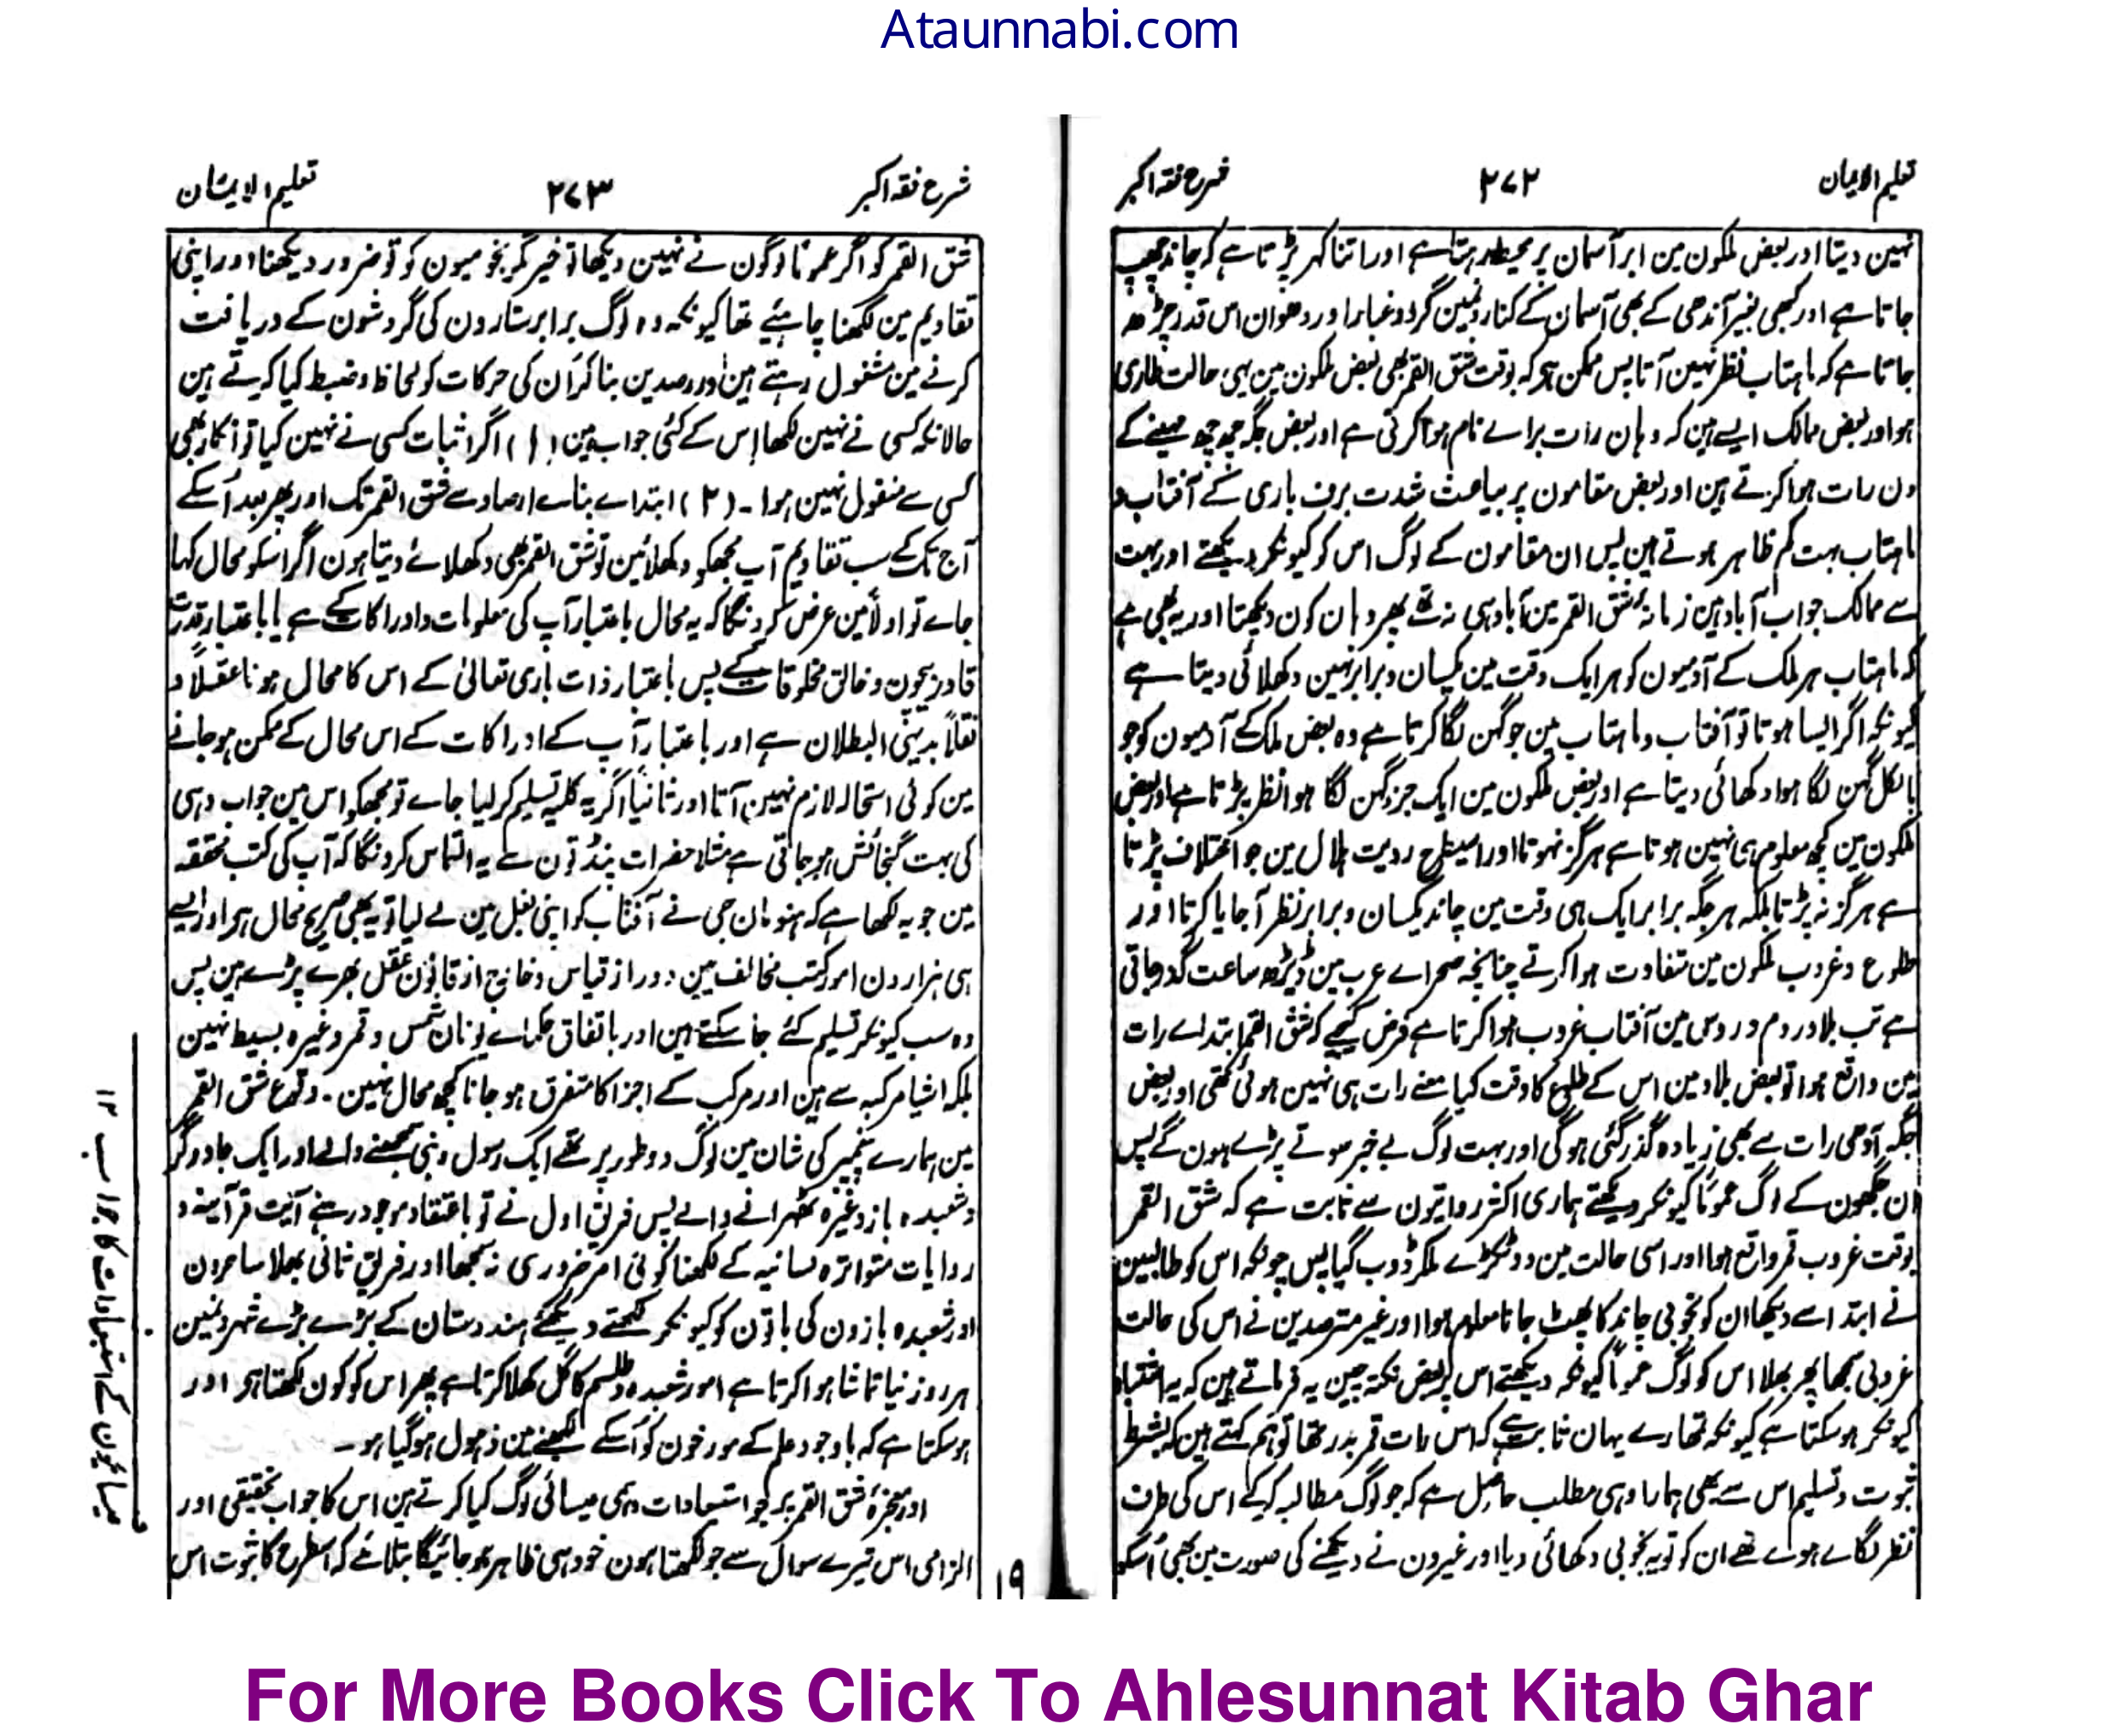 Ataunnabi.com
تعلیم الایمان ۲۷۲ شرح فقہ اکبر
نہین دیتا اور بعض ملکون مین ابر آسمان پر محیط رہتا ہے اور اتنا کہر پڑتا ہے کہ چاند چھپ
جاتا ہے اور کبھی بغیر آندھی کے بھی آسمان کے کنارونمین گرد و غبار اور دھوان اس قدر چڑھ
جاتا ہے کہ ماہتاب نظر نہین آتا پس ممکن ہے کہ بوقت شق القمر بھی بعض ملکون مین یہی حالت طاری
ہو اور بعض ممالک ایسے ہین کہ وہان رات براے نام ہوا کرتی ہے اور بعض جگہ چھ چھ مہینے کے
دن رات ہوا کرتے ہین اور بعض مقامون پر بباعث شدت برف باری کے آفتاب و
ماہتاب بہت کم ظاہر ہوتے ہین پس ان مقامون کے لوگ اس کو کیونکر دیکھتے اور بہت
سے ممالک جو اب آباد ہین زمانۂ شق القمر مین آباد ہی نہ تھے پھر وہان کون دیکھتا اور یہ بھی ہے
کہ ماہتاب ہر ملک کے آدمیون کو ہر ایک وقت مین یکسان و برابر نہین دکھلائی دیتا ہے
کیونکہ اگر ایسا ہوتا تو آفتاب و ماہتاب مین جو گہن لگا کرتا ہے وہ بعض ملک کے آدمیون کو جو
بالکل گہن لگا ہوا دکھائی دیتا ہے اور بعض ملکون مین ایک جز گہن لگا ہوا نظر پڑتا ہے اور بعض
ملکون مین کچھ معلوم ہی نہین ہوتا ہے ہرگز نہوتا اور اسیطرح رویت ہلال مین جو اختلاف پڑتا
ہے ہرگز نہ پڑتا بلکہ ہر جگہ برابر ایک ہی وقت مین چاند یکسان و برابر نظر آجایا کرتا اور
طلوع و غروب ملکون مین متفاوت ہوا کرتے چنانچہ صحراے عرب مین ڈیڑھ ساعت گذر جاتی
ہے تب بلاد روم و روس مین آفتاب غروب ہوا کرتا ہے فرض کیجیے کہ شق القمر ابتداے رات
مین واقع ہوا تو بعض بلاد مین اس کے طلوع کا وقت کیا معنے رات ہی نہین ہوئی تھی اور بعض
جگہ آدھی رات سے بھی زیادہ گذر گئی ہوگی اور بہت لوگ بے خبر سوتے پڑے ہون گے پس
ان جگھون کے لوگ عموماً کیونکر دیکھتے ہماری اکثر روایتون سے ثابت ہے کہ شق القمر
بوقت غروب قمر واقع ہوا اور اسی حالت مین دو ٹکڑے ملکر ڈوب گیا پس چونکہ اس کو طالبین
نے ابتدا سے دیکھا ان کو بخوبی چاند کا پھٹ جانا معلوم ہوا اور غیر مترصدین نے اس کی حالت
غروبی سمجھا پھر بھلا اس کو لوگ عموماً کیونکر دیکھتے اس پر بعض نکتہ چین یہ فرماتے ہین کہ یہ اشتباہ
کیونکر ہو سکتا ہے کیونکہ تمھارے یہان ثابت ہے کہ اس رات قمر بدر تھا تو ہم کہتے ہین کہ بشرط
ثبوت و تسلیم اس سے بھی ہمارا وہی مطلب حاصل ہے کہ جو لوگ مطالبہ کر کے اس کی طرف
نظر لگاے ہوے تھے ان کو تو یہ بخوبی دکھائی دیا اور غیرون نے دیکھنے کی صورت مین بھی اسکو
شرح فقہ اکبر ۲۷۳ تعلیم الایمان
شق القمر کو اگر عموماً لوگون نے نہین دیکھا تو خیر مگر نجومیون کو تو ضرور دیکھنا اور اپنی
تقاویم مین لکھنا چاہئیے تھا کیونکہ وہ لوگ برابر ستارون کی گردشون کے دریافت
کرنے مین مشغول رہتے ہین اور رصدین بنا کر ان کی حرکات کو لحاظ و ضبط کیا کرتے ہین
حالانکہ کسی نے نہین لکھا اس کے کئی جواب ہین (۱) اگر اثبات کسی نے نہین کیا تو انکار بھی
کسی سے منقول نہین ہوا ـ (۲) ابتداے بناے ارصاد سے شق القمر تک اور پھر بعد اسکے
آج تک کے سب تقاویم آپ مجھکو دکھلائین تو شق القمر بھی دکھلائے دیتا ہون اگر اسکو محال کہا
جاے تو اولاً مین عرض کرونگا کہ یہ محال باعتبار آپ کی معلومات و ادراکات کے ہے یا باعتبار قدرت
قادر بیچون و خالق مخلوقات کے پس باعتبار ذات باری تعالیٰ کے اس کا محال ہونا عقلاً و
نقلاً بدیہی البطلان ہے اور باعتبار آپ کے ادراکات کے اس محال کے ممکن ہو جانے
مین کوئی استحالہ لازم نہین آتا اور ثانیاً اگر یہ کلیہ تسلیم کر لیا جاے تو مجھکو اس مین جواب دہی
کی بہت گنجائش ہو جاتی ہے مثلاً حضرات پنڈتون سے یہ التماس کرونگا کہ آپ کی کتب محققہ
مین جو یہ لکھا ہے کہ ہنومان جی نے آفتاب کو اپنی بغل مین لے لیا تو یہ بھی صریح محال ہے اور ایسے
ہی ہزارون امور کتب مخالف مین دور از قیاس و خارج از قانون عقل بھرے پڑے ہین پس
وہ سب کیونکر تسلیم کئے جا سکتے ہین اور باتفاق حکماے یونان شمس و قمر وغیرہ بسیط نہین
بلکہ اشیا مرکبہ سے ہین اور مرکب کے اجزا کا متفرق ہو جانا کچھ محال نہین ۔ وقوع شق القمر
مین ہمارے پیغمبر کی شان مین لوگ دو طور پر تھے ایک رسول و نبی سمجھنے والے اور ایک جادوگر
و شعبدہ باز وغیرہ ٹھہرانے والے پس فریق اول نے تو باعتقاد موجود رہنے آیت قرآنیہ و
روایات متواترہ لسانیہ کے لکھنا کوئی امر ضروری نہ سمجھا اور فریق ثانی بھلا ساحرون
اور شعبدہ بازون کی باتون کو کیونکر لکھتے دیکھئے ہندوستان کے بڑے بڑے شہرونمین
ہر روز نیا تماشا ہوا کرتا ہے امور شعبدہ و طلسم کا گل کھلا کرتا ہے پھر اس کو کون لکھتا ہے اور
ہو سکتا ہے کہ باوجود علم کے مورخون کو اسکے لکھنے مین ذہول ہو گیا ہو ـ
اور معجزۂ شق القمر پر جو استبعادات وہمی عیسائی لوگ کیا کرتے ہین اس کا جواب تحقیقی اور
الزامی اس تیرے سوال سے جو لکھتا ہون خود ہی ظاہر ہو جائیگا بتلائے کہ اسطرح کا ثبوت اس
عیسائیون کے استبعادات کا جواب ۱۲
۱۹
For More Books Click To Ahlesunnat Kitab Ghar